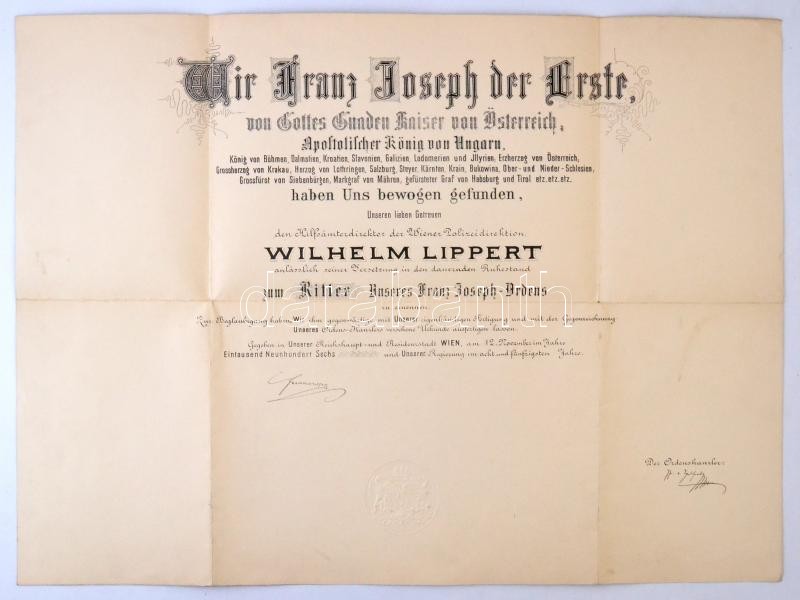 Wir Franz Joseph der Erste,
von Gottes Gnaden Kaiser von Österreich,
Apostolischer König von Ungarn,
König von Böhmen, Dalmatien, Kroatien, Slavonien, Galizien, Lodomerien und Jllyrien, Erzherzog von Österreich,
Grossherzog von Krakau, Herzog von Lothringen, Salzburg, Steyer, Kärnten, Krain, Bukowina, Ober- und Nieder-Schlesien,
Grossfürst von Siebenbürgen, Markgraf von Mähren, gefürsteter Graf von Habsburg und Tirol etz. etz. etz.
haben Uns bewogen gefunden,
Unseren lieben Getreuen
den Hilfsämterdirektor der Wiener Polizeidirektion
WILHELM LIPPERT
anlässlich seiner Versetzung in den dauernden Ruhestand
zum Ritter Unseres Franz Joseph-Ordens
zu ernennen.
Zur Beglaubigung haben Wir ihm gegenwärtige mit Unserer eigenhändigen Fertigung und mit der Gegenzeichnung
Unseres Ordens-Kanzlers versehene Urkunde ausfertigen lassen.
Gegeben in Unserer Reichshaupt- und Residenzstadt WIEN, am 12. November im Jahre
Eintausend Neunhundert Sechs und Unserer Regierung im acht und fünfzigsten Jahre.
Der Ordenskanzler:
darabanth